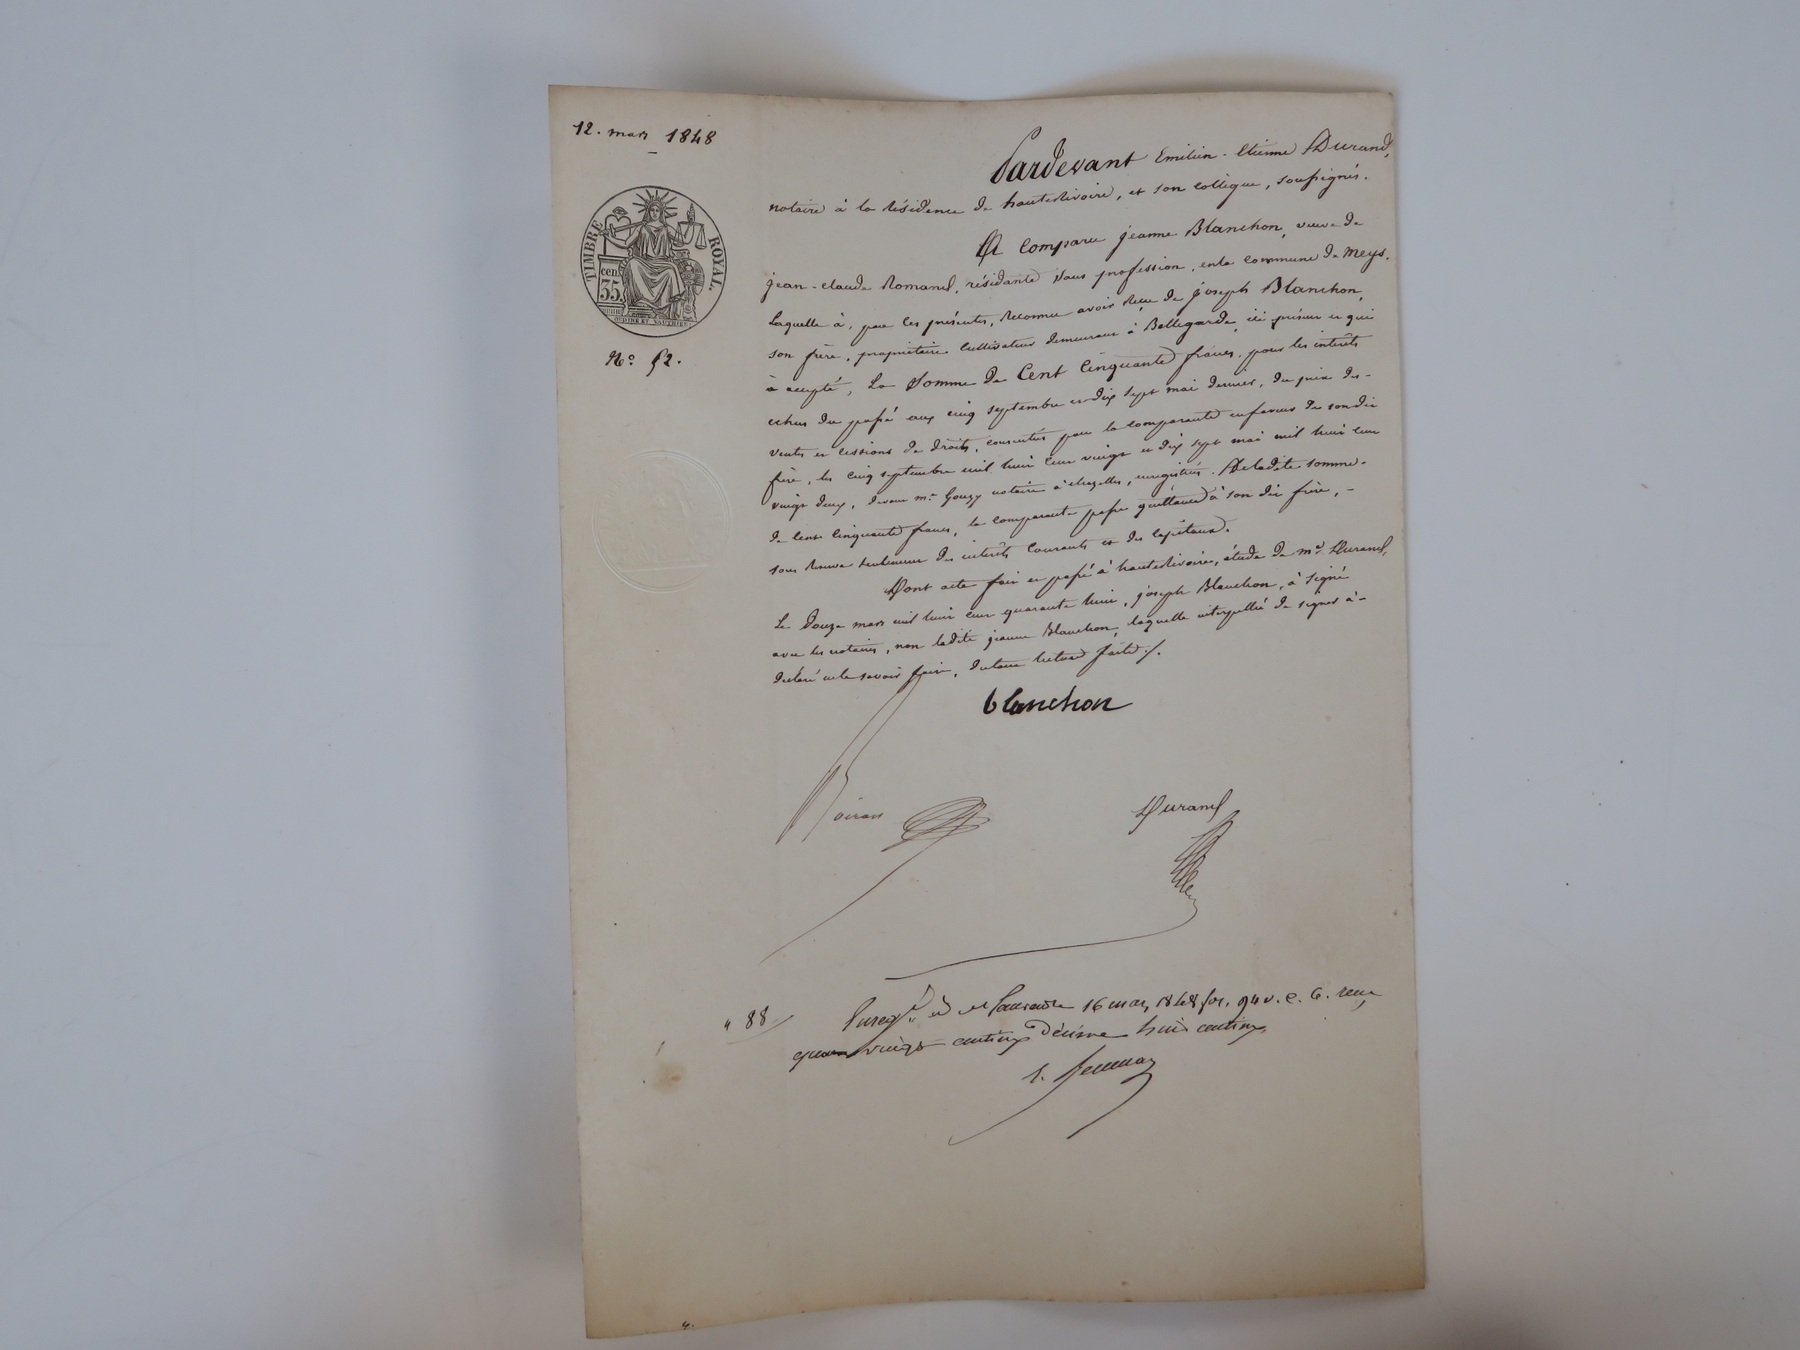 12. mars 1848
TIMBRE ROYAL.
cen.
35
N° 52.
Pardevant Emilien-Etienne Durand,
notaire à la Résidence de hauterivoire, et son collègue, soussignés.
A comparu jeanne Blanchon, veuve de
jean-claude Romand, résidante sans profession, en la commune de Meys.
Laquelle à, par ces présentes, Reconnu avoir Reçu de joseph Blanchon,
son frère, propriétaire cultivateur demeurant à Bellegarde, ici présent et qui
à accepté, La Somme de Cent Cinquante francs, pour les intérêts
echus du passé aux cinq septembre et dix sept mai dernier, du prix des-
ventes et cessions de droits, consenties par la comparante en faveur de son dit
frère, les cinq septembre mil huit cent vingt et dix sept mai mil huit cent
vingt deux, devant me Gouzy notaire à chazelles, enregistrés. De ladite somme-
de Cent Cinquante francs, la comparante passe quittance à son dit frère, -
sous Réserve seulement des intérêts Courants et des Capitaux.
Dont acte fait et passé à hauterivoire, étude de me Durand,
Le Douze mars mil huit cent quarante huit, joseph Blanchon, à signé
avec les notaires, non ladite jeanne Blanchon, laquelle interpellée de signer à-
déclaré ne le savoir faire, du tout lecture faite ./.
blanchon
Durand
" 88
Enregé à St Laurent le 16 mars 1848 fol. 94 v. C. 6. reçu
quatre vingts centimes Décime huit centimes
4.